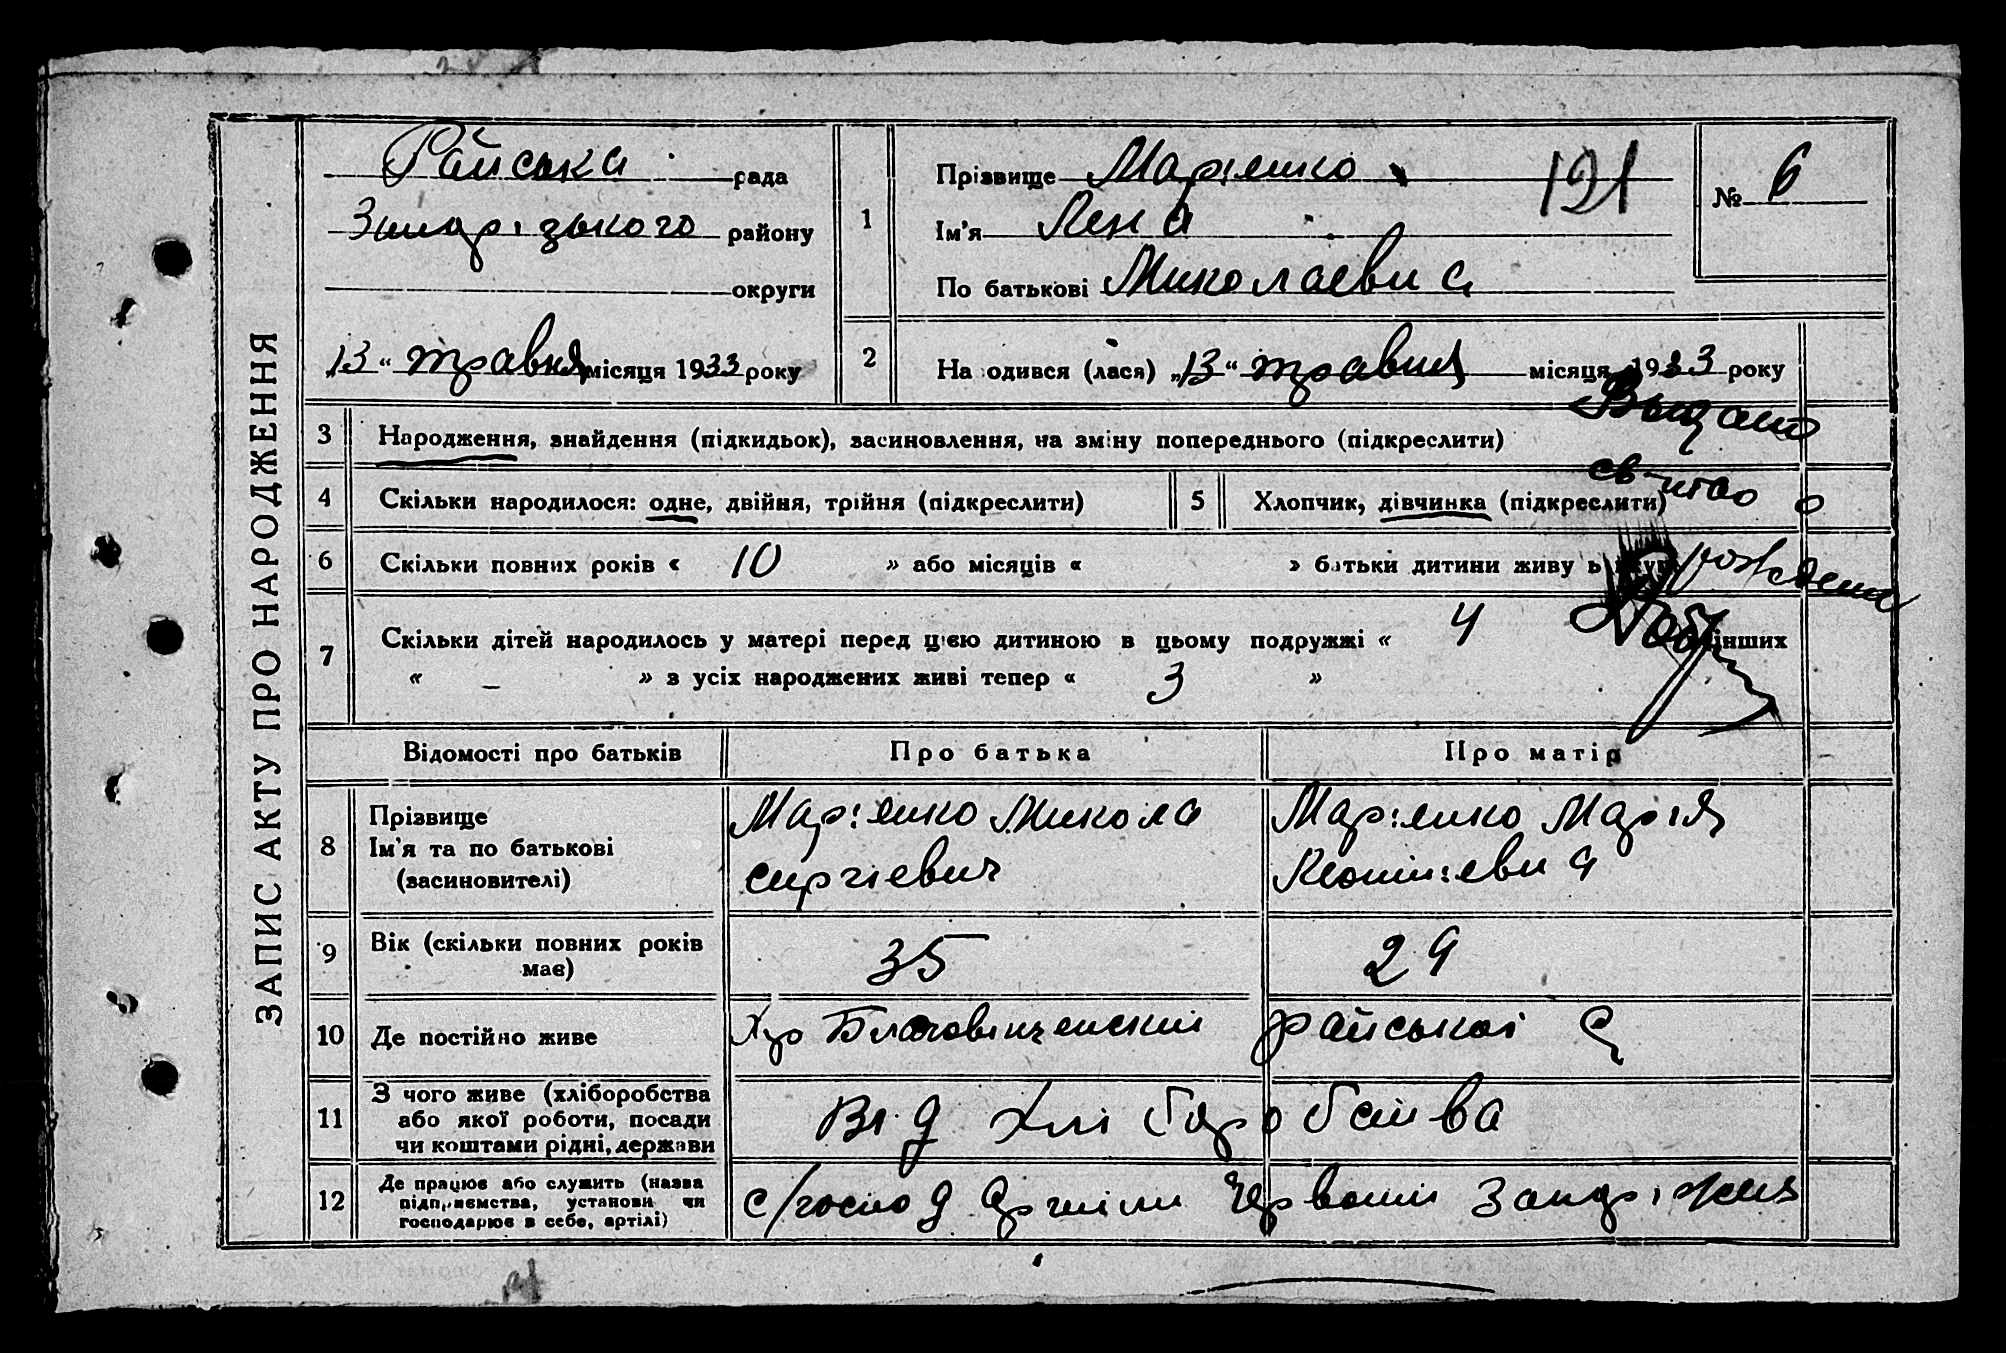 ЗАПИС АКТУ ПРО НАРОДЖЕННЯ
Райська рада
району
округи
„13“ травня місяця 1933 року
1
Прізвище Марієнко
Ім'я Лена
По батькові Миколаевна
191
№ 6
2
На одився (лася) „13“ травня місяця 1933 року
Выдано
св-тво о
рождении
3 Народження, знайдення (підкидьок), засиновлення, на зміну попереднього (підкреслити)
4 Скільки народилося: одне, двійня, трійня (підкреслити)
5 Хлопчик, дівчинка (підкреслити)
6 Скільки повних років « 10 » або місяців « » батьки дитини живу ь
7 Скільки дітей народилось у матері перед цією дитиною в цьому подружжі « 4 інших
« – » з усіх народжених живі тепер « 3 »
Відомості про батьків Про батька Про матір
8 Прізвище
Ім'я та по батькові
(засиновителі)
Марієнко Микола
сиргіевич
Марієнко Марія
9 Вік (скільки повних років
має)
35
29
10 Де постійно живе
Хур Благовіщенский райськоі С
11 З чого живе (хліборобства
або якої роботи, посади
чи коштами рідні, держави
Від хліборобства
12 Де працює або служить (назва
підприємства, установи чи
господарює в себе, артілі)
с/господ Артіли Червоний Запоріжя